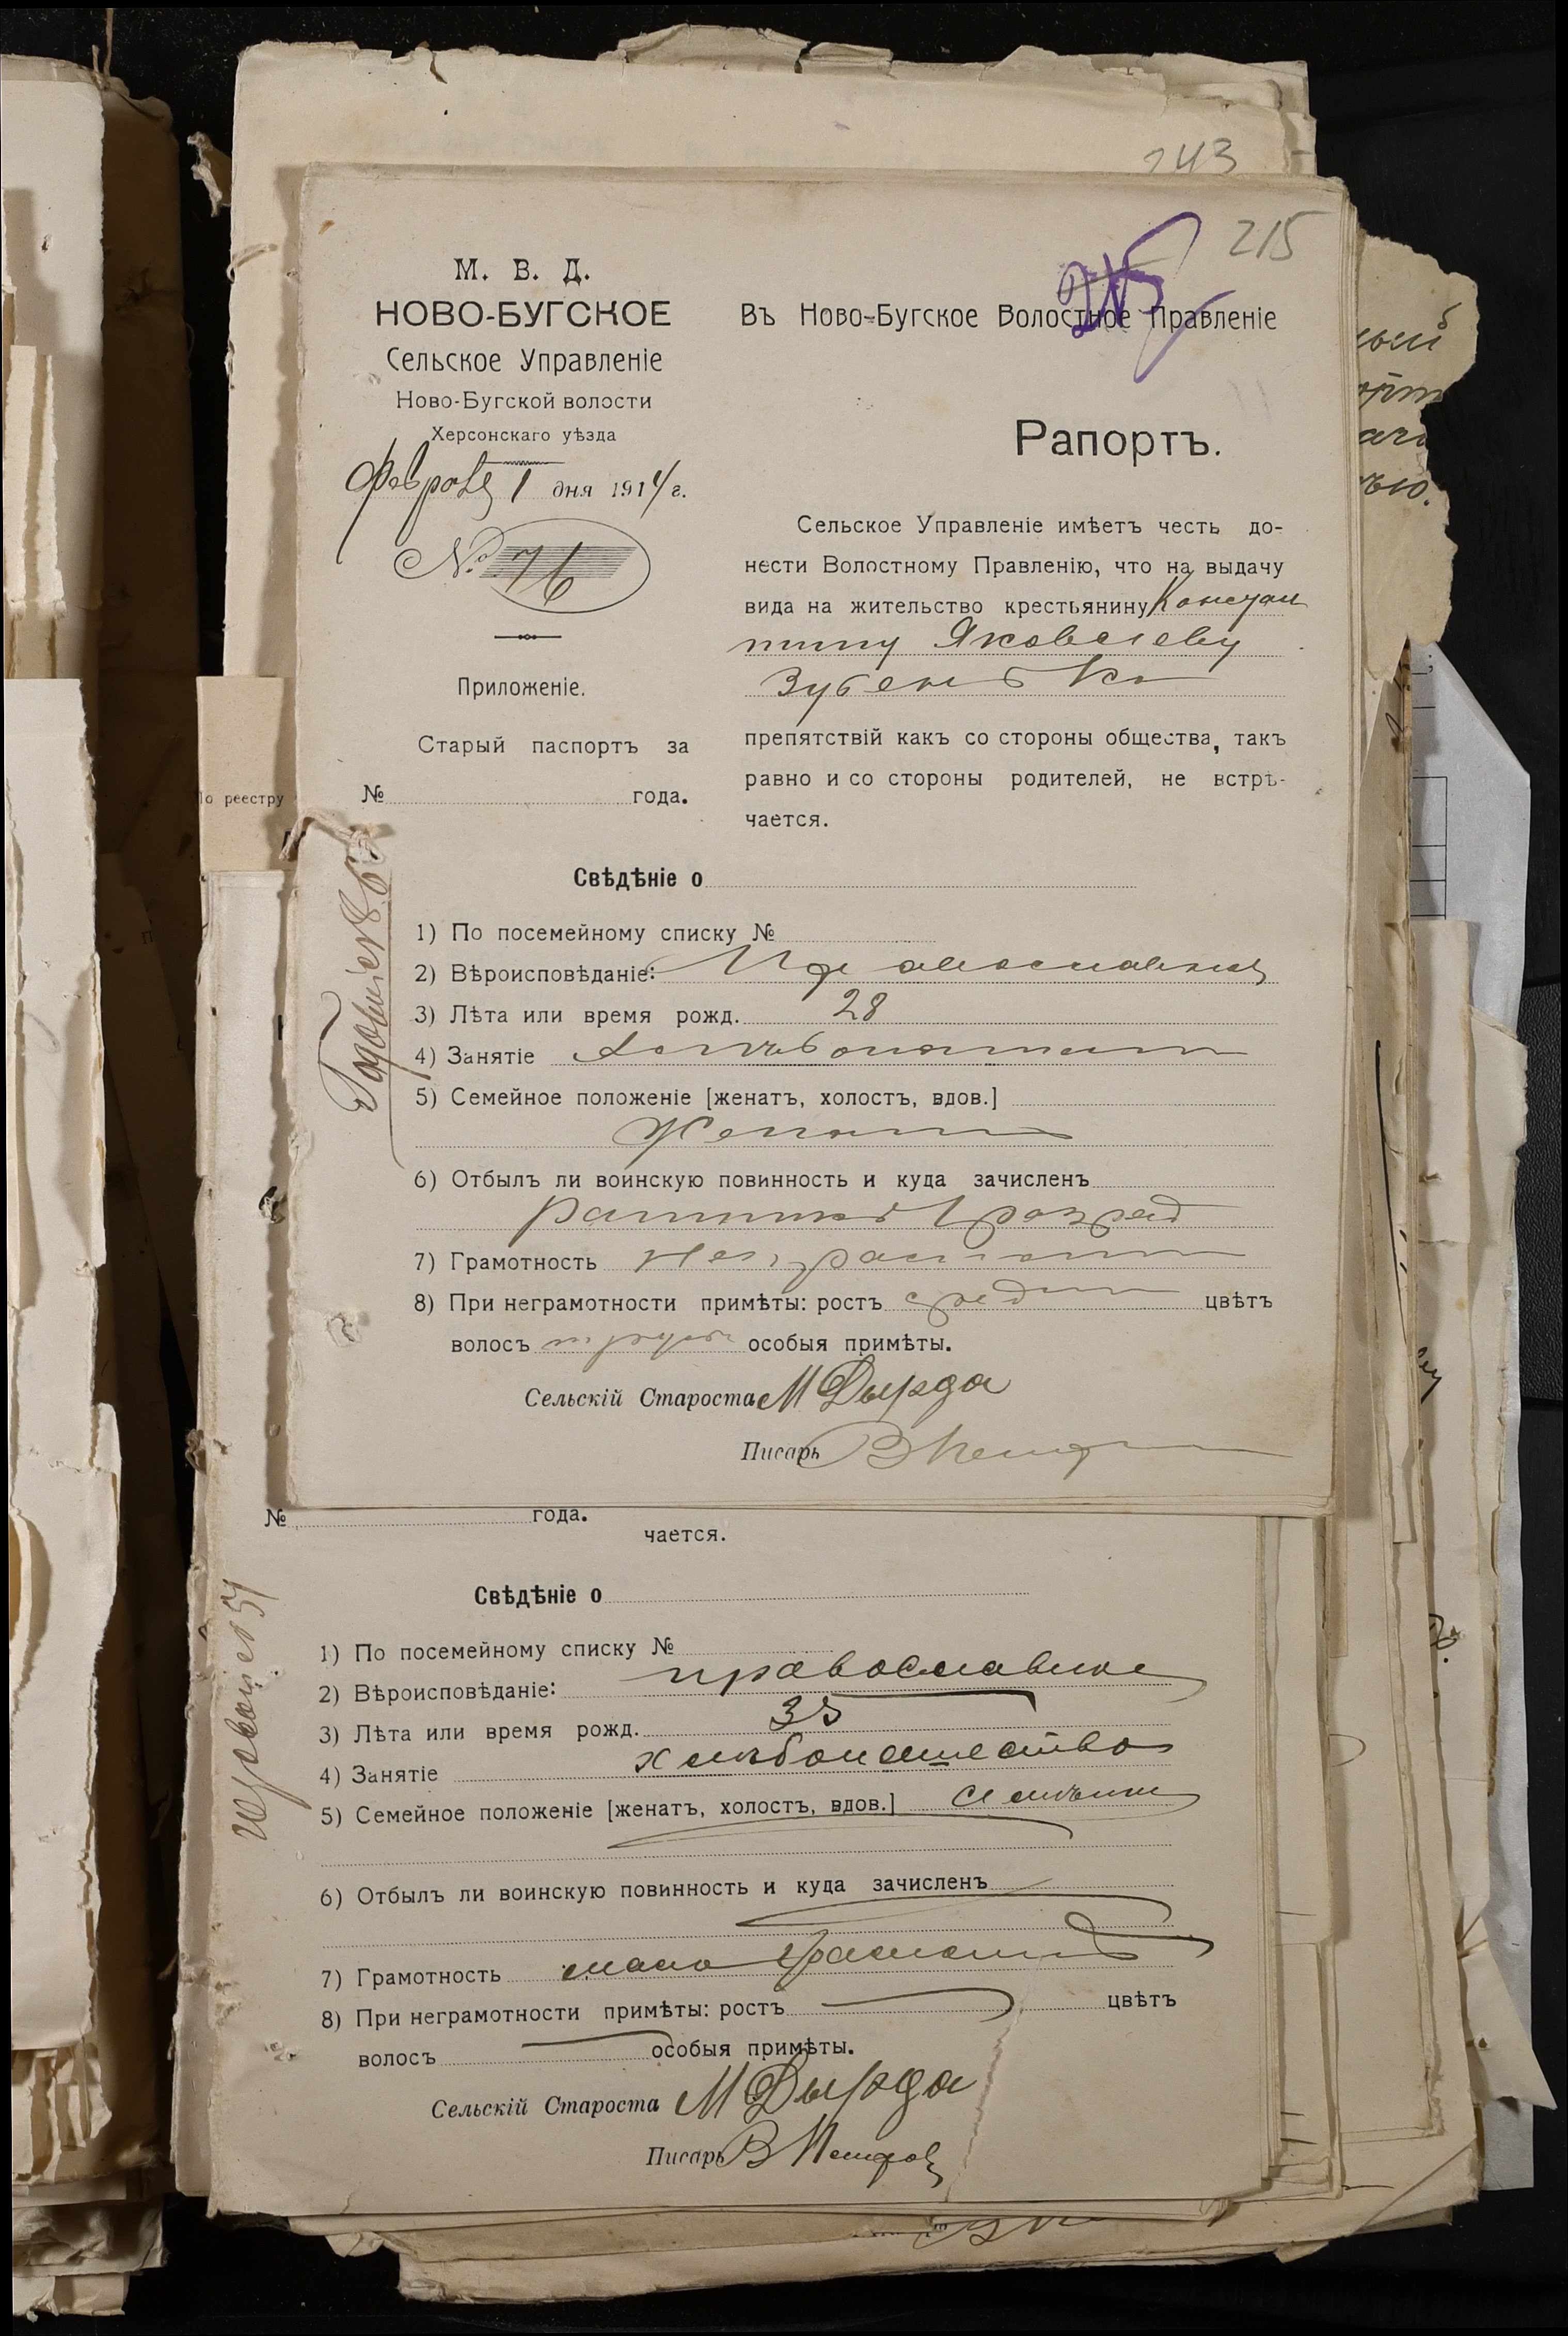 243
215
215
М. В. Д.
НОВО-БУГСКОЕ
Сельское Управленіе
Ново-Бугской волости
Херсонскаго уѣзда
февраля 1 дня 1914 г.
№ 76
Приложеніе.
Старый паспортъ за
№ года.
Въ Ново-Бугское Волостное Правленіе
Рапортъ.
Сельское Управленіе имѣетъ честь до-
нести Волостному Правленію, что на выдачу
вида на жительство крестьянину Констан
тину Яковлеву
Зубенько
препятствій какъ со стороны общества, такъ
равно и со стороны родителей, не встрѣ-
чается.
о реестру
Свѣдѣніе о
1) По посемейному списку №
2) Вѣроисповѣданіе: Православный
3) Лѣта или время рожд. 28
4) Занятіе Хлѣбопашец
5) Семейное положеніе [женатъ, холостъ, вдов.]
Женат
6) Отбылъ ли воинскую повинность и куда зачисленъ
Ратник 1 разряд
7) Грамотность Неграмотн
8) При неграмотности примѣты: ростъ средн цвѣтъ
волосъ особыя примѣты.
Сельскій Староста М Дырда
Писарь В Петров
№ года.
чается.
Свѣдѣніе о
1) По посемейному списку №
2) Вѣроисповѣданіе: православное
3) Лѣта или время рожд. 35
4) Занятіе хлѣбопашество
5) Семейное положеніе [женатъ, холостъ, вдов.]
6) Отбылъ ли воинскую повинность и куда зачисленъ
7) Грамотность мало грамотный
8) При неграмотности примѣты: ростъ цвѣтъ
волосъ особыя примѣты.
Сельскій Староста М Дырда
Писарь В Петров